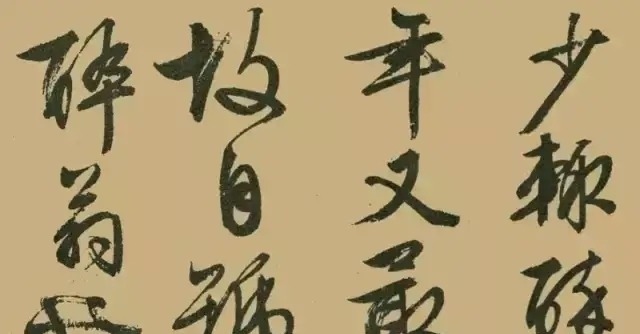 少輒醉
年又最
故自號
醉翁也